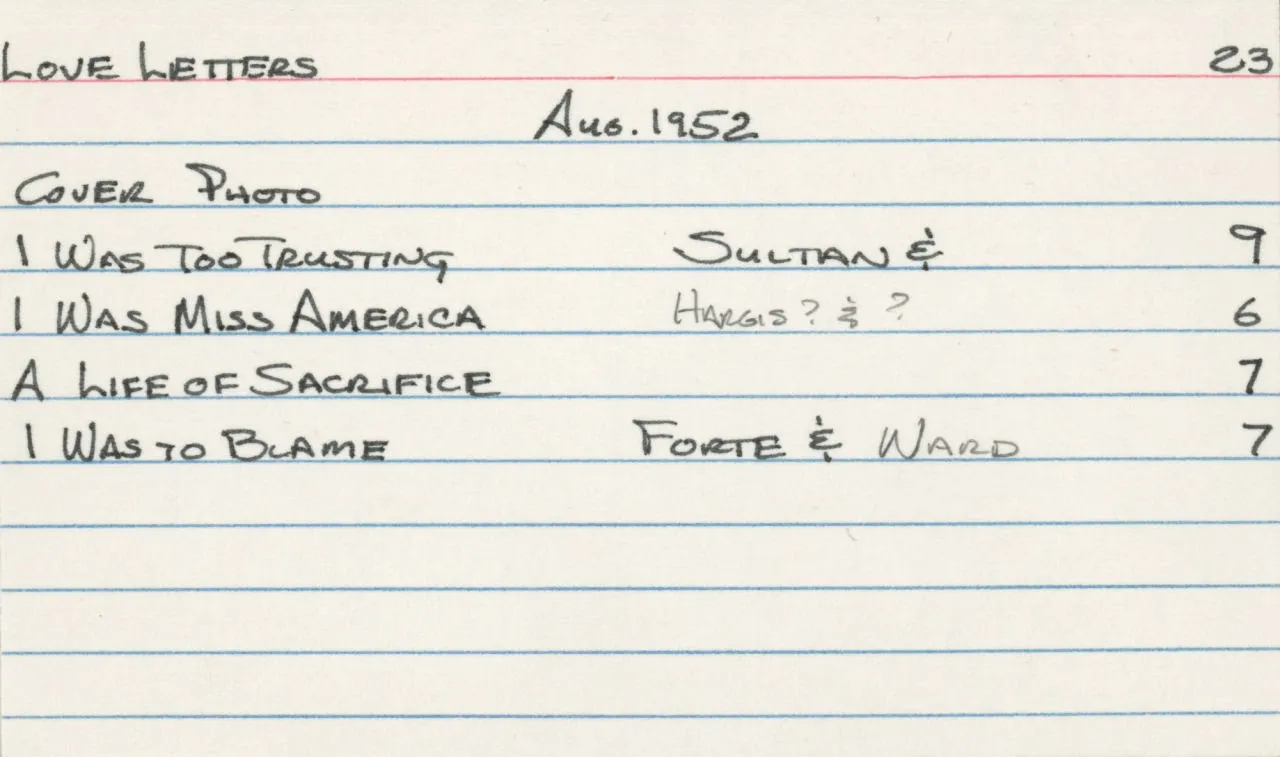 LOVE LETTERS 23
AUG. 1952
COVER PHOTO
I WAS TOO TRUSTING SULTAN & 9
I WAS MISS AMERICA HARGIS? & ? 6
A LIFE OF SACRIFICE 7
I WAS TO BLAME FORTE & WARD 7